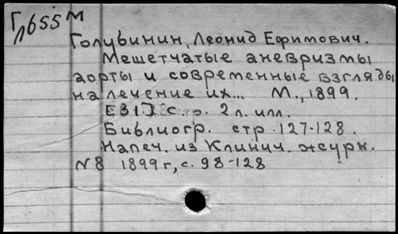 Г/1655 М
Голубинин, Леонид Ефимович.
Мешетчатые аневризмы
аорты и современные взгляды
на лечение их... М., 1899.
[31] с. 2 л. илл.
Библиогр. стр. 127-128.
Напеч. из Клинич. журн.
№8 1899 г, с. 98-128